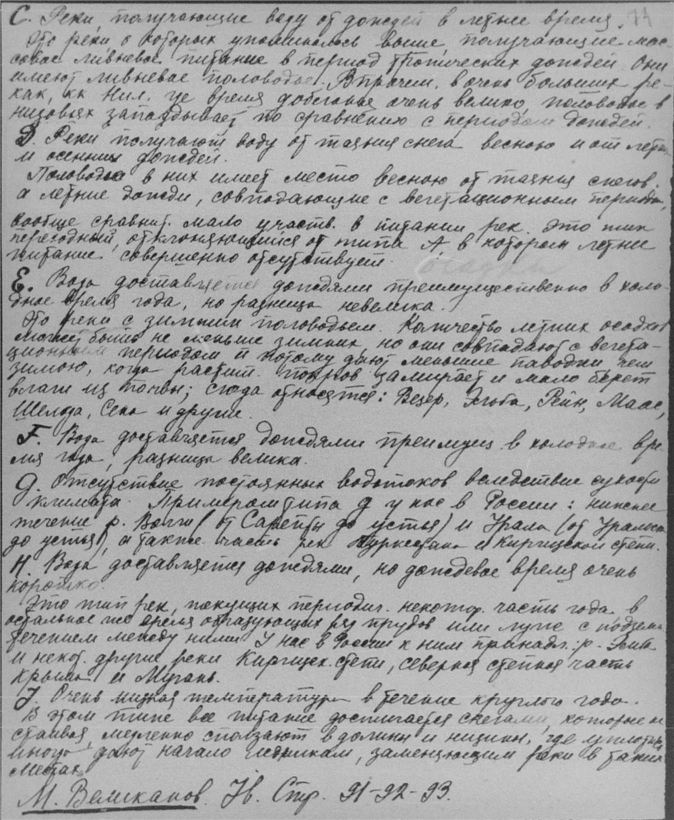 С. Реки, получающие воду от дождей в летнее время.
Это реки о которых упоминалось выше, получающие мас-
совое ливневое питание в период тропических дождей. Они
имеют ливневое половодье. Впрочем, в очень больших ре-
ках, кк Нил, где время добегания очень велико, половодье в
низовьях запаздывает по сравнению с периодом дождей.
D. Реки получают воду от таяния снега весною и от летн
и осенних дождей.
Половодье в них имеет место весною от таяния снегов.
а летние дожди, совпадающие с вегетационным периодом,
вообще сравнит. мало участв. в питании рек. Это тип
переходный, отклоняющийся от типа А в котором летнее
питание совершенно отсутствует.
Е. Вода доставляется дождями преимущественно в холо-
дное время года, но разница невелика.
Это реки с зимним половодьем. Количество летних осадков
может быть не меньше зимних, но они совпадают с вегета-
ционным периодом и потому дают меньшие паводки, чем
зимою, когда растит. покров замирает и мало берет
влаги из почвы; сюда относятся: Везер, Эльба, Рейн, Маас,
Шельда, Сена и другие.
F. Вода доставляется дождями преимущ. в холодное вре-
мя года, разница велика.
g. Отсутствие постоянных водотоков вследствие сухости
климата. Примером типа g у нас в России: нижнее
течение р. Волги (от Сарепты до устья) и Урала (от Уральска
до устья), а также часть рек Туркестана и Киргизской степи.
H. Вода доставляется дождями, но дождевое время очень
коротко.
Это тип рек, текущих периодич. некотор. часть года. в
остальное же время образующих ряд прудов или луж с подземн.
течением между ними. У нас в России к ним принадл. р.
и некот. другие реки Киргизск. степи, северная степная часть
Крыма и Мугань.
J. Очень низкая температура в течение круглого года.
В этом типе все питание достигается снегами, которые не
стаивая медленно сползают в долины и низины, где уплотня
дают начало ледникам, заменяющим реки в таких
местах.
М. Великанов. Стр. 91-92-93.